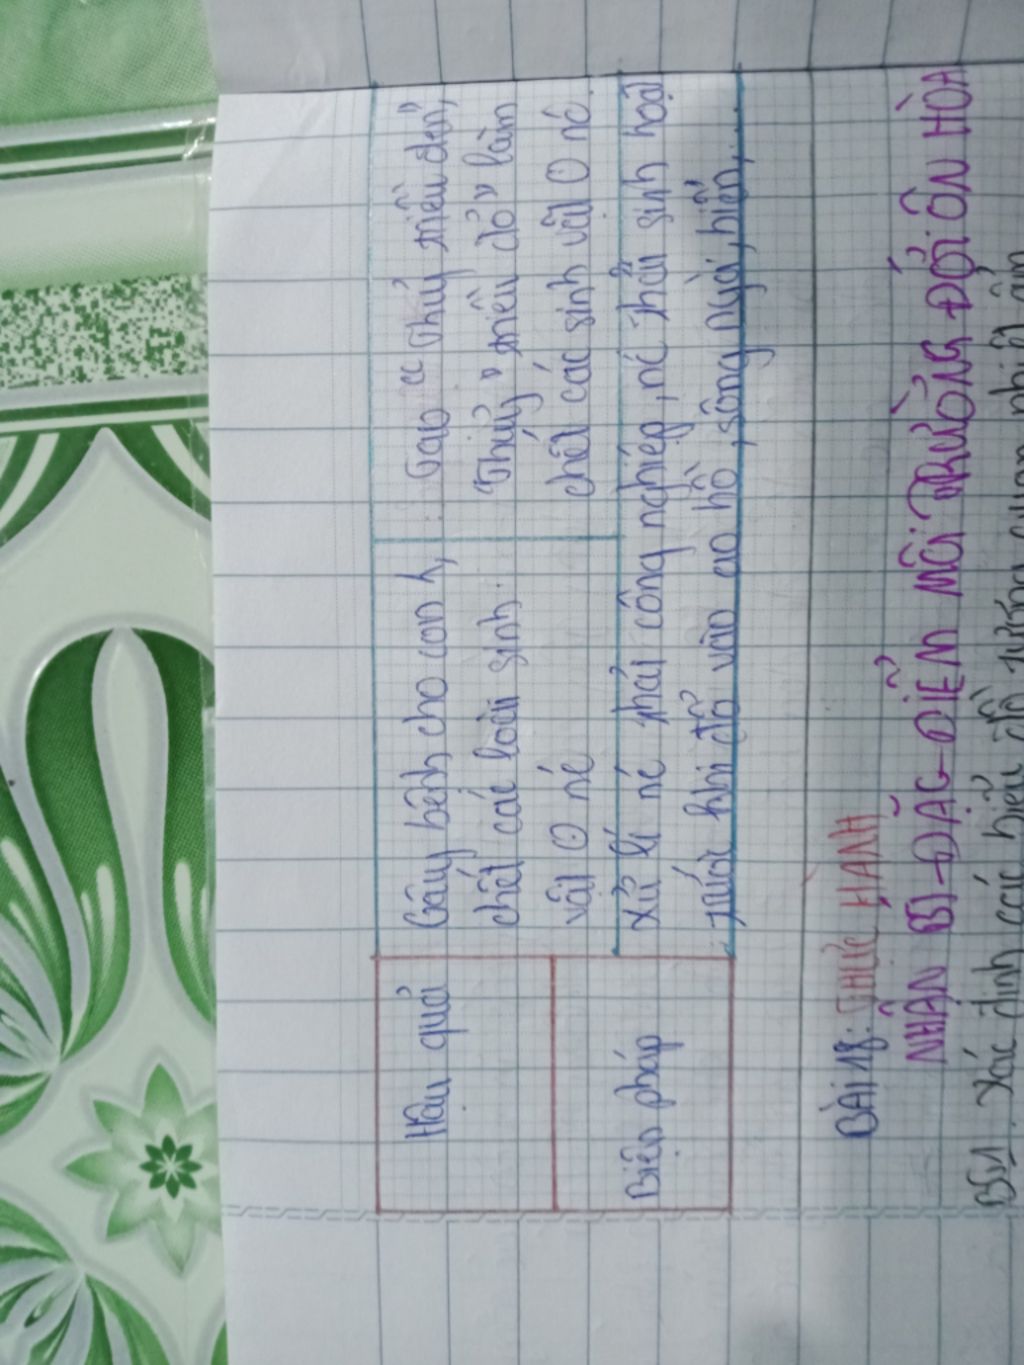 Hậu quả
Gây bệnh cho con
chết các loài sinh
vật
Tạo " thủy triều đen",
"thủy" triều đỏ" làm
chết các sinh vật
Biện pháp
Xử lí phải công nghiệp, thải sinh hoạt
trước khi đổ vào ao hồ, sông ngòi, biển,...
BÀI 18: THỰC HÀNH
NHẬN BI-ĐẶC ĐIỂM MÔI TRƯỜNG ĐỚI ÔN HÒA
Xác định các biểu đồ tương quan nhiệt ẩm